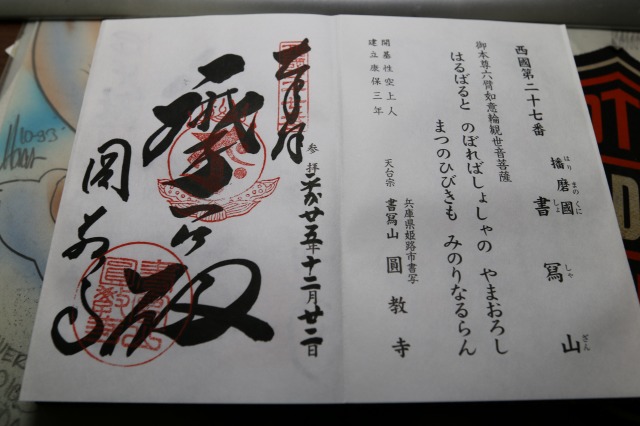 西國第二十七番
播磨國 書寫山
はり まの くに しよ しや ざん
御本尊六臂如意輪観世音菩薩
はるばると のぼればしょしゃの やまおろし
まつのひびきも みのりなるらん
開基性空上人
建立康保三年
兵庫県姫路市書写
天台宗 書寫山 圓教寺
奉拝
参拝 平成廿五年十二月廿二日
摩尼殿
圓教寺
10-93